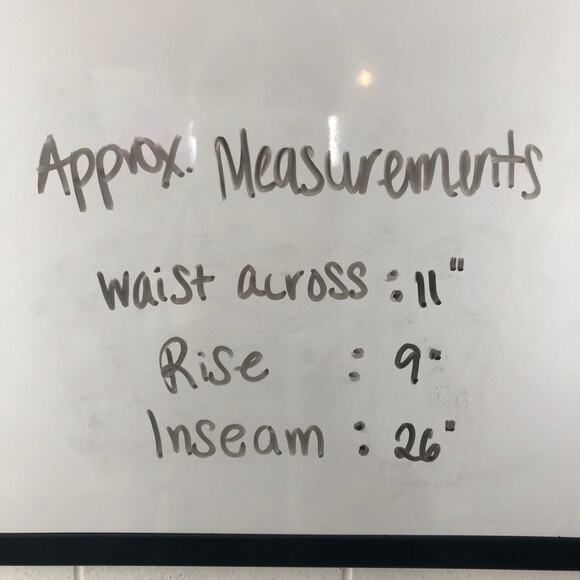 Approx. Measurements
Waist across : 11"
Rise : 9"
Inseam : 26"